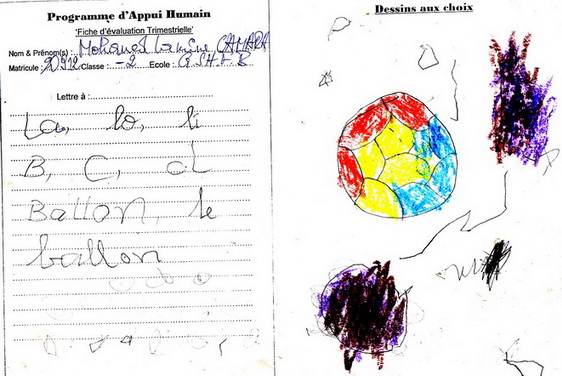 Programme d'Appui Humain
'Fiche d'évaluation Trimestrielle'
Nom & Prénom(s) : Mohamed Lamine CAMARA
Matricule : 20912 Classe : -2 Ecole : G.S.H.L.B
Lettre à :
La, lo, li
B, C, d
Ballon, le
ballon
Dessins aux choix